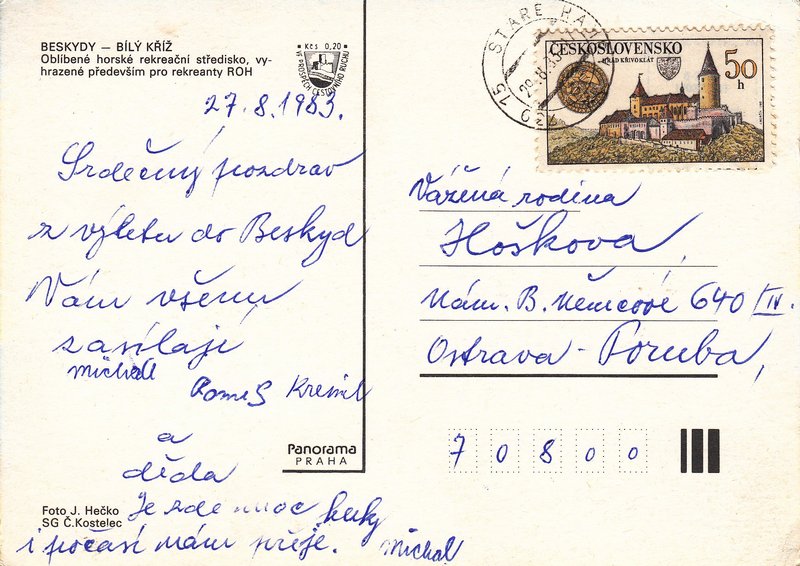 BESKYDY — BÍLÝ KŘÍŽ
Oblíbené horské rekreační středisko, vy-
hrazené především pro rekreanty ROH
Kčs 0,20
VE PROSPĚCH CESTOVNÍHO RUCHU
27.8.1983.
Srdečný pozdrav
z výletu do Beskyd
Vám všem
zasílají
Michal
a
děda
Je zde moc
i počasí nám přeje. Michal
Panorama
PRAHA
Foto J. Hečko
SG Č.Kostelec
STARÉ
ČESKOSLOVENSKO
HRAD KŘIVOKLÁT
50
h
Vážená rodina
Hoškova,
Nám. B. Němcové 640/IV.
Ostrava - Poruba,
7 0 8 0 0